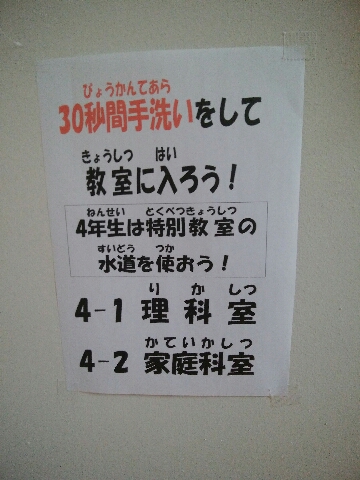 びょうかんてあら
30秒間手洗いをして
きょうしつ はい
教室に入ろう！
ねんせい とくべつきょうしつ
4年生は特別教室の
すいどう つか
水道を使おう！
り か しつ
4-1 理科室
かていかしつ
4-2 家庭科室